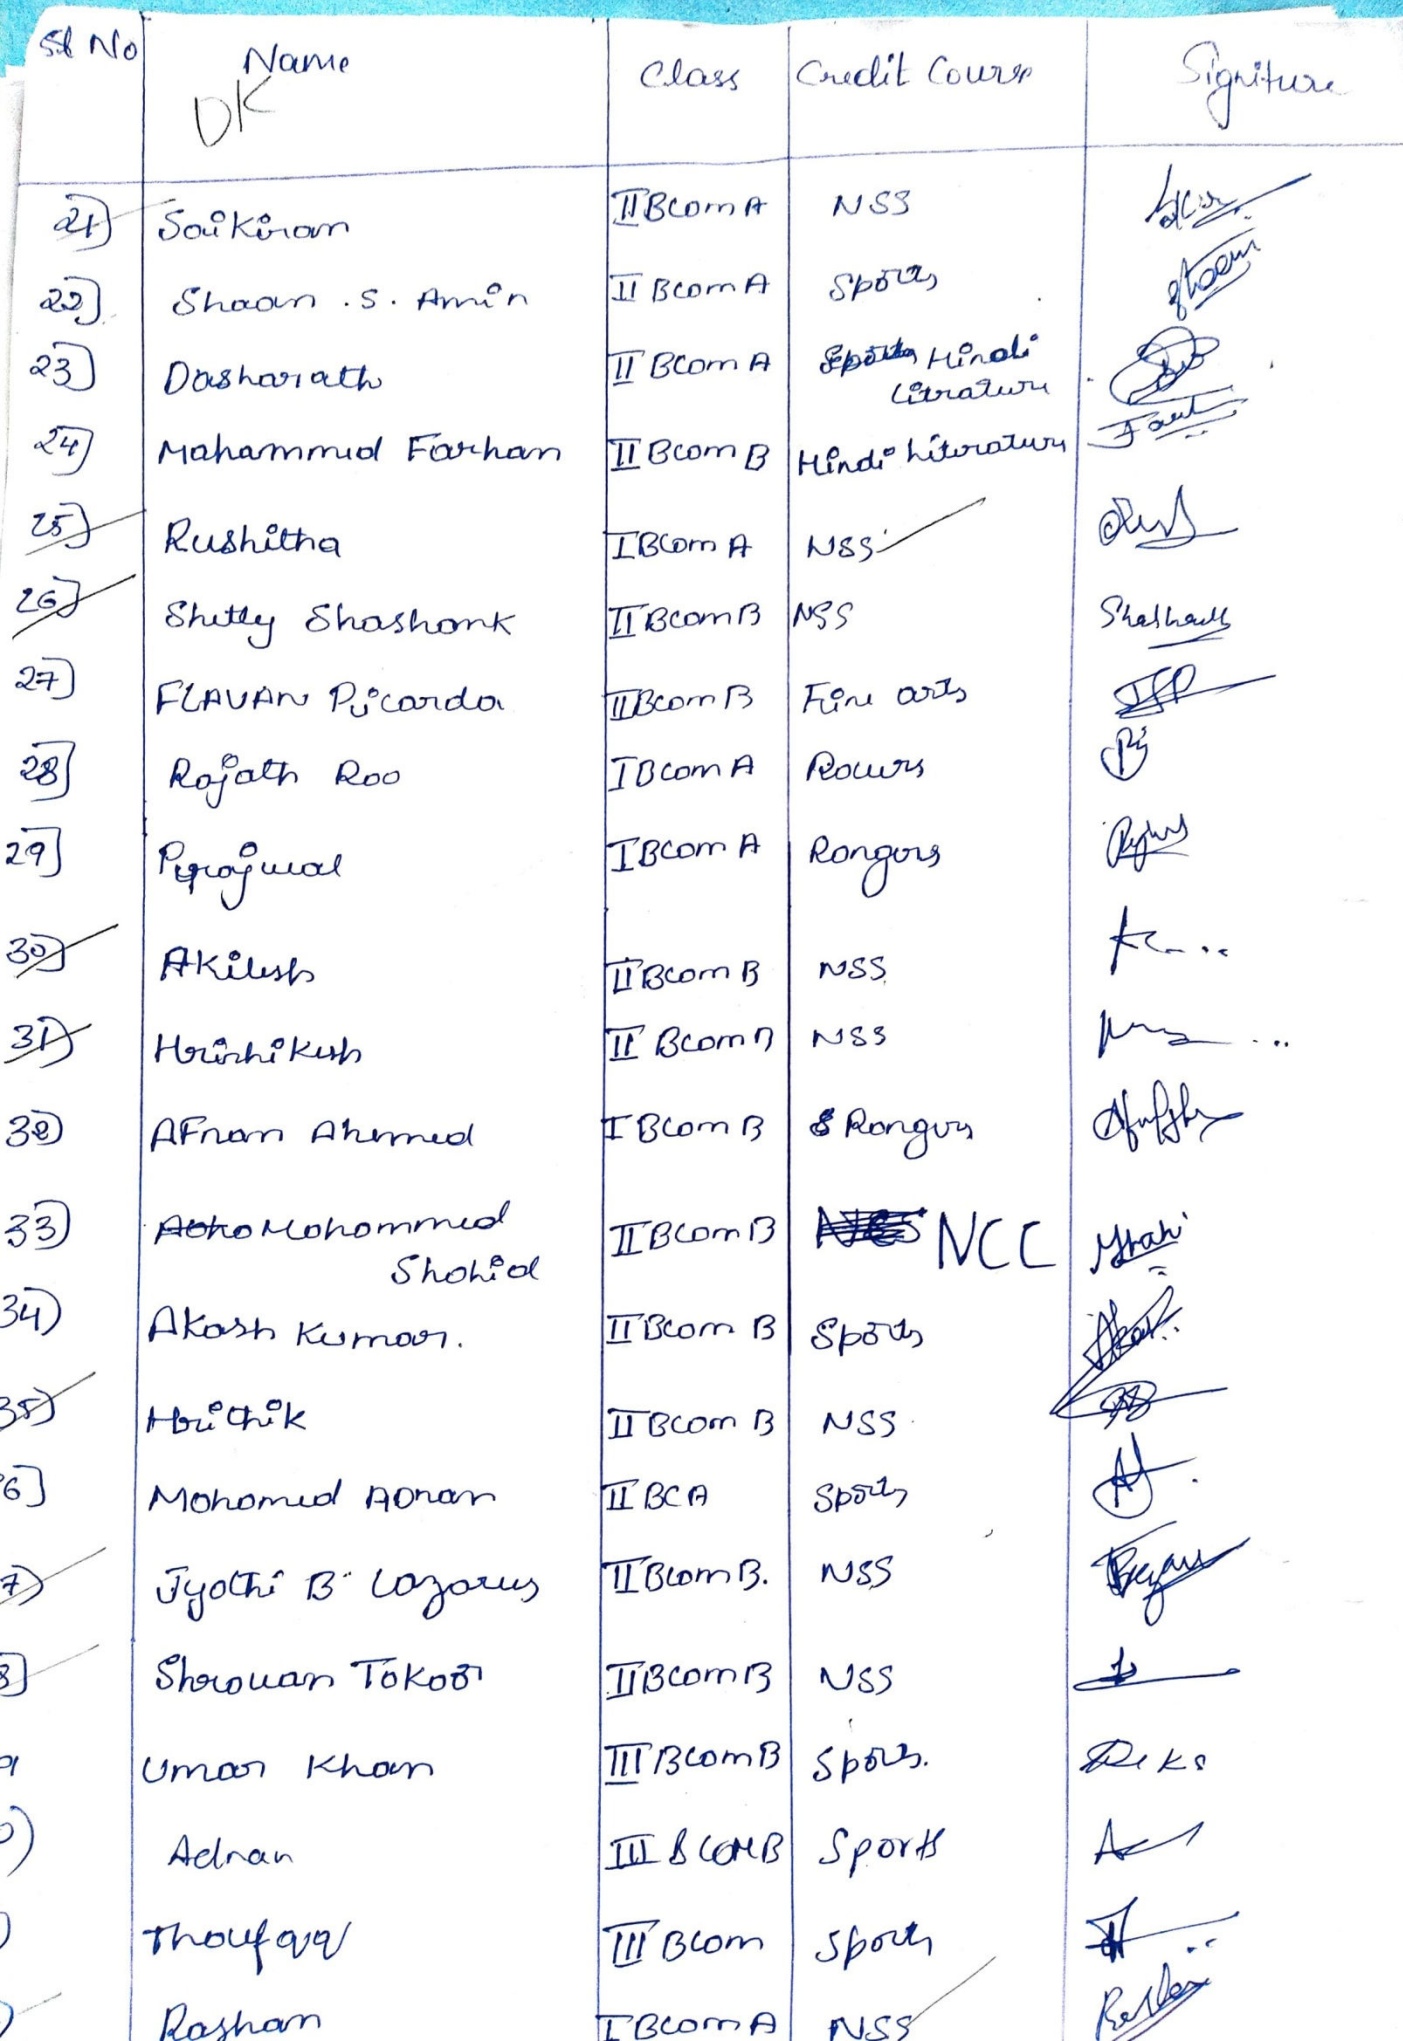 Sl No Name Class Credit Course Signiture
DK
21) Saikiran II BCom A NSS
22) Shaan .S. Amin II BCom A Sports
23) Dasharath II BCom A Sports Hindi
Litrature
24) Mahammed Farhan II BCom B Hindi Literature
25) Rushitha I BCom A NSS
26) Shetty Shashank II BCom B NSS Shashank
27) FLAVAN Picardo II BCom B Fine arts
28) Rajath Rao I BCom A Rovers
29) Prajwal I BCom A Rangers
30) Akilesh II BCom B NSS
31) Hrishikesh II BCom B NSS
32) AFnan Ahemed I BCom B Rangers
33) Mohammed II BCom B NCC
Shahid
34) Akash Kumar. II BCom B Sports
35) Hrithik II BCom B NSS
6) Mohamed ADnan II BCA Sports
7) Jyothi B Lazarus II BCom B. NSS
8) Shravan Tokoor II BCom B NSS
9 Umar Khan III BCom B Sports.
0) Adnan III B COM B Sports
) Thoufaq III BCom Sports
) Rashan I BCom A NSS